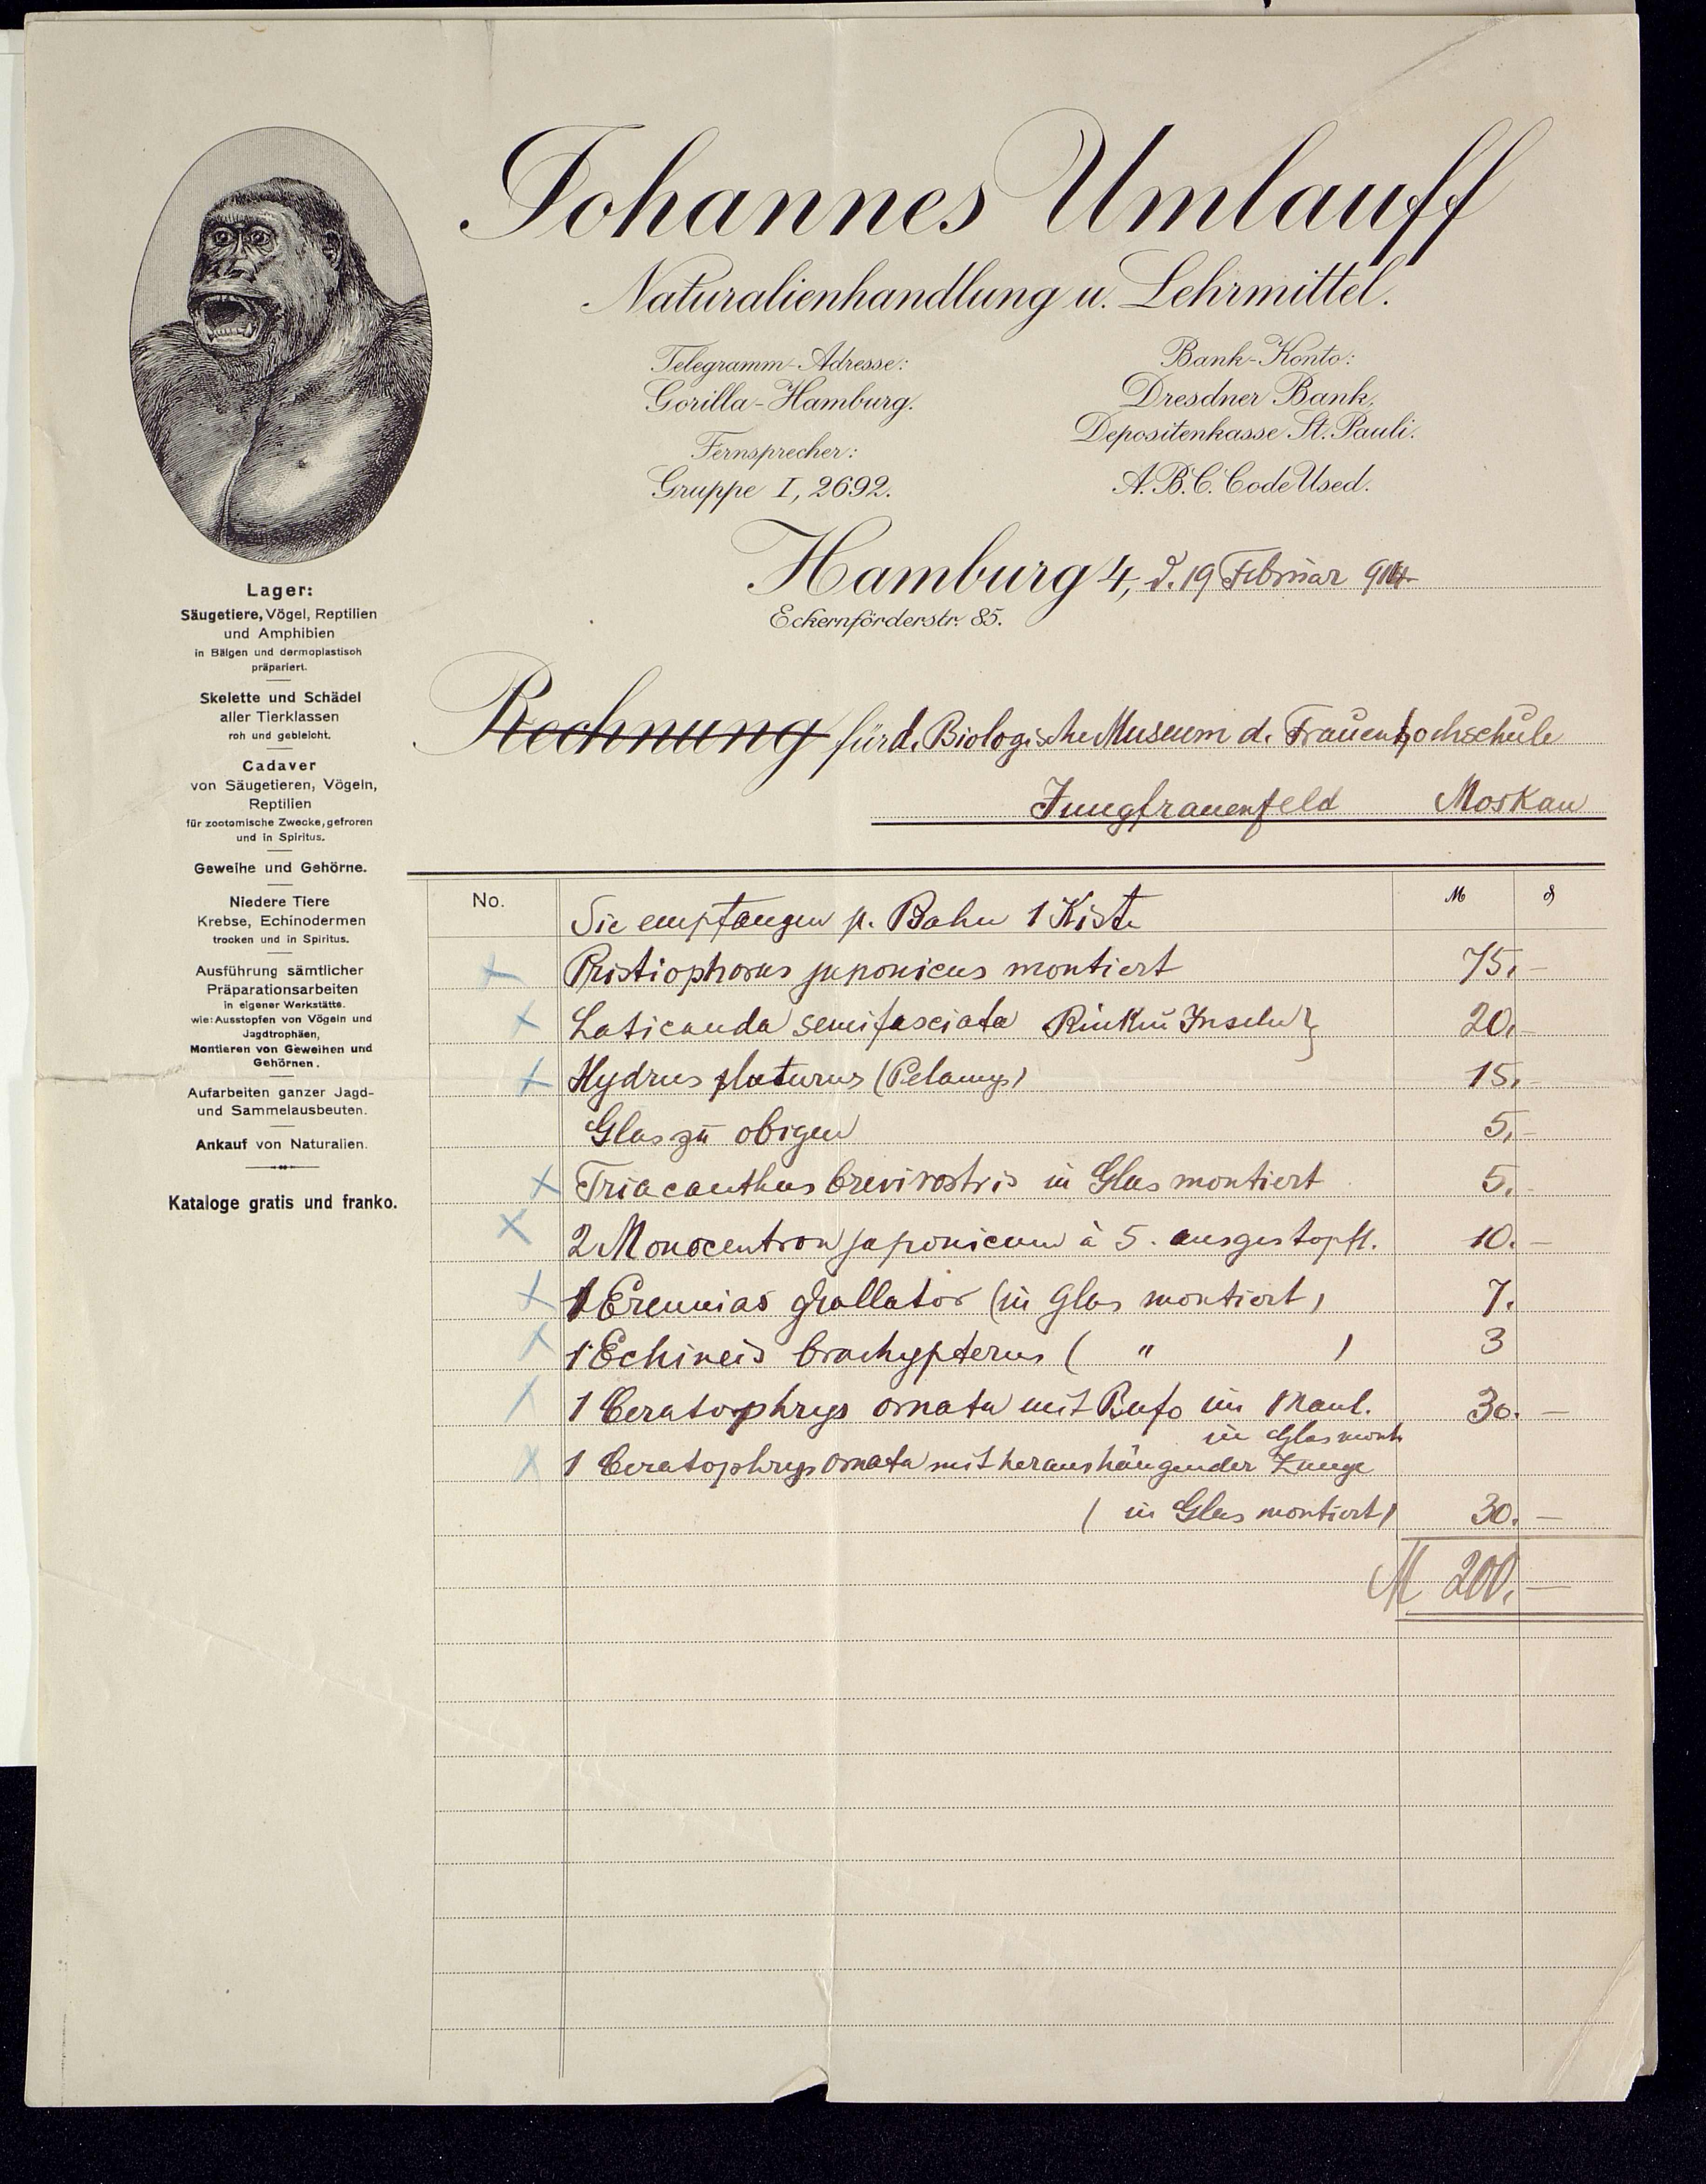 Johannes Umlauff
Naturalienhandlung u. Lehrmittel.
Telegramm-Adresse:
Gorilla-Hamburg.
Fernsprecher:
Gruppe I, 2692.
Bank-Konto:
Dresdner Bank,
Depositenkasse St. Pauli.
A.B.C. Code Used.
Hamburg 4, d. 19 Februar 914
Eckernförderstr. 85.
Lager:
Säugetiere, Vögel, Reptilien
und Amphibien
in Bälgen und dermoplastisch
präpariert.
Skelette und Schädel
aller Tierklassen
roh und gebleicht.
Cadaver
von Säugetieren, Vögeln,
Reptilien
für zootomische Zwecke, gefroren
und in Spiritus.
Geweihe und Gehörne.
Niedere Tiere
Krebse, Echinodermen
trocken und in Spiritus.
Ausführung sämtlicher
Präparationsarbeiten
in eigener Werkstätte.
wie: Ausstopfen von Vögeln und
Jagdtrophäen,
Montieren von Geweihen und
Gehörnen.
Aufarbeiten ganzer Jagd-
und Sammelausbeuten.
Ankauf von Naturalien.
Kataloge gratis und franko.
Rechnung für d. Biologische Museum d. Frauenhochschule
Jungfrauenfeld Moskau
No. M ₰
Sie empfangen p. Bahn 1 Kiste
Pristiophorus japonicus montiert 75.-
Laticauda semifasciata Riukiu Inseln 20.-
Hydrus platurus (Pelamys) 15.-
Glas zu obigen 5.-
Triacanthus brevirostris in Glas montiert 5.-
2 Monocentron japonicum à 5. ausgestopft. 10.-
1 Ereunias grallator (in Glas montiert) 7.
1 Echineis brachypterus ( " ) 3
1 Ceratophrys ornata mit Bufo im Maul. 30.-
in Glas mont.
1 Ceratophrys ornata mit heraushängender Zunge
(in Glas montiert) 30.-
M 200.-